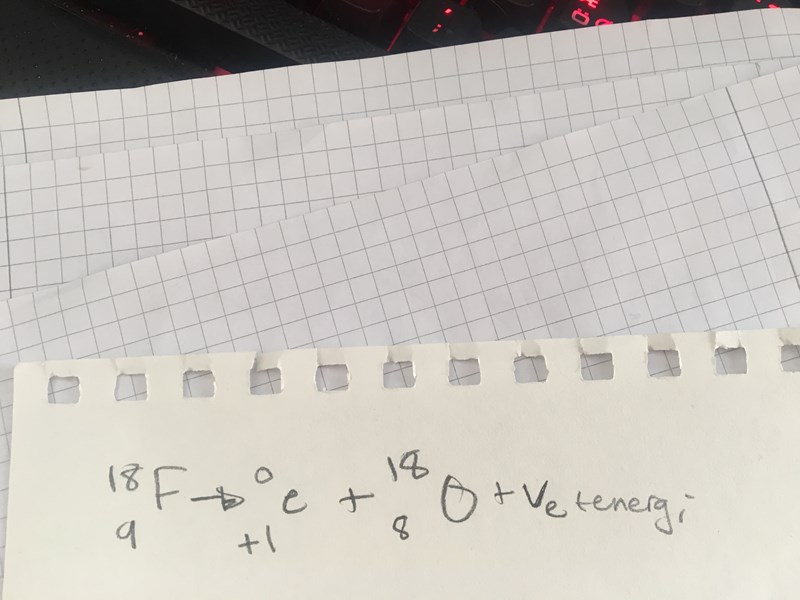 ¹⁸₉F → ⁰₊₁e + ¹⁸₈O + Ve + energi